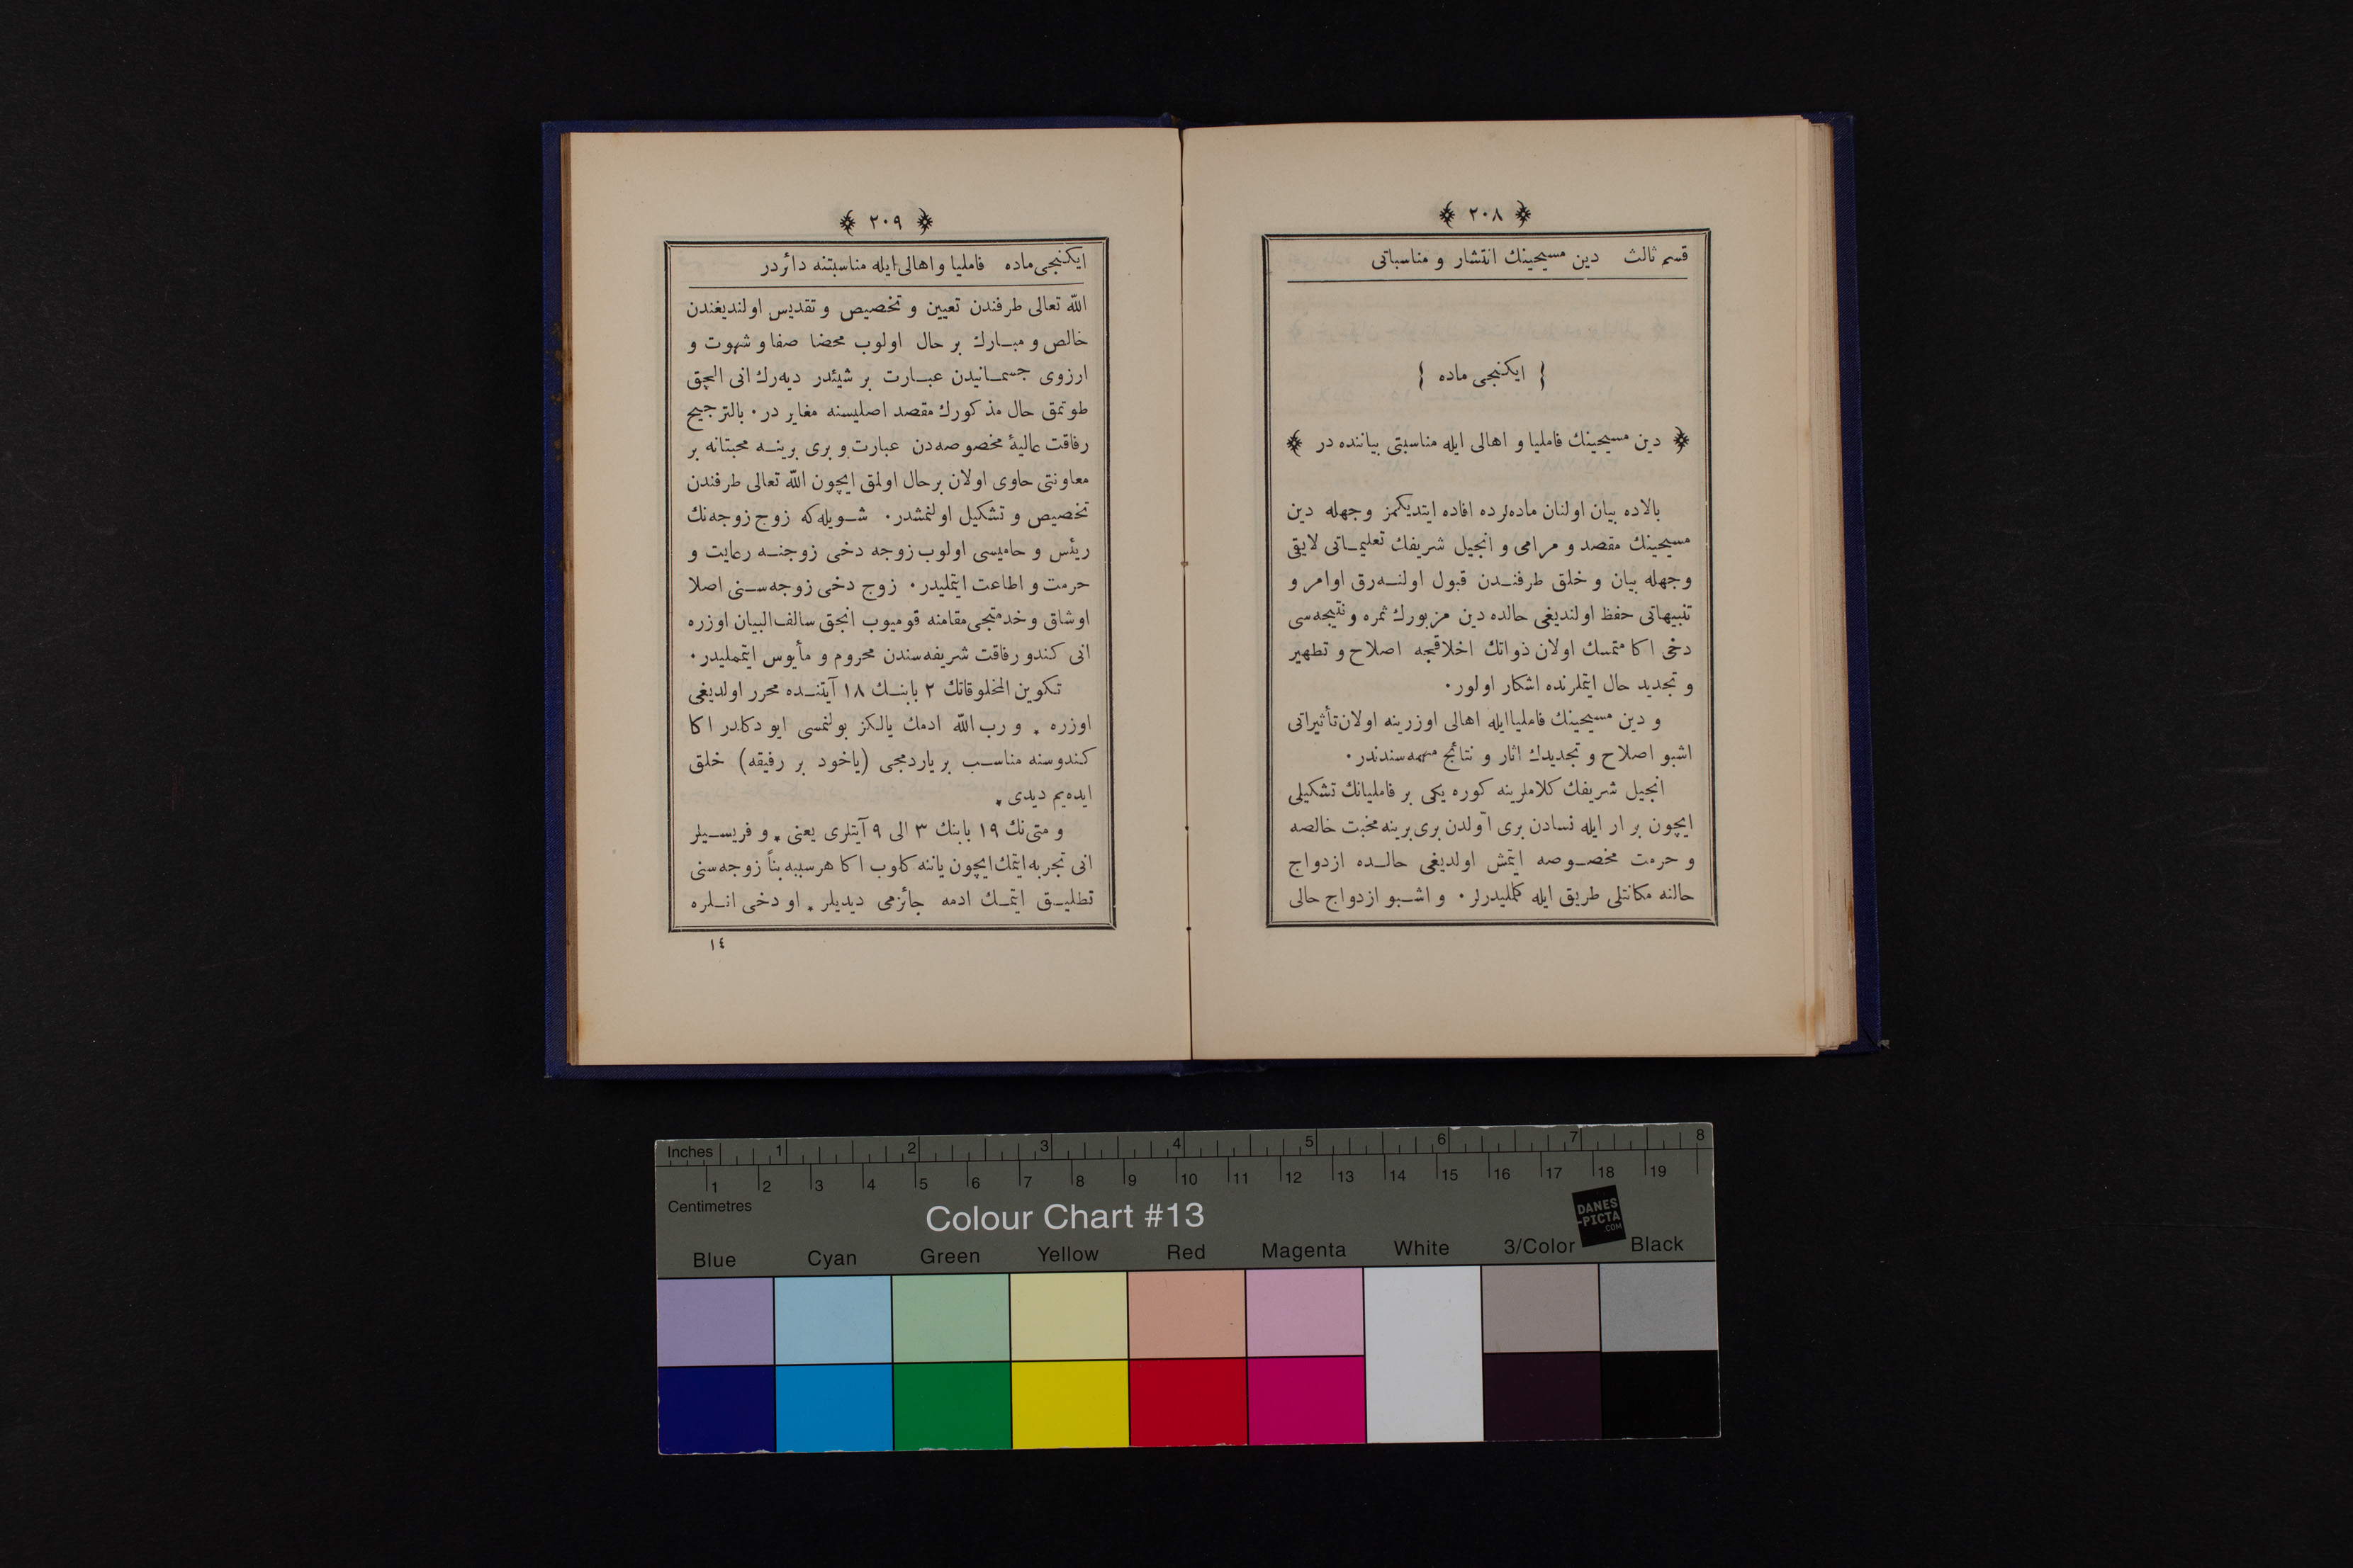 ﴿ ٢٠٨ ﴾
قسم ثالث دین مسیحینك انتشار و مناسباتی
{ ایکنجی ماده }
﴿ دین مسیحینك فاملیا و اهالی ایله مناسبتی بیاننده در ﴾
بالاده بیان اولنان ماده‌لرده افاده ایتدیکمز وجهله دین
مسیحینك مقصد و مرامی و انجیل شریفك تعلیماتی لایقی
وجهله بیان و خلق طرفندن قبول اولنه‌رق اوامر و
تنبیهاتی حفظ اولندیغی حالده دین مزبورك ثمره و نتیجه‌سی
دخی اکا متمسك اولان ذواتك اخلاقجه اصلاح و تطهیر
و تجدید حال ایتملرنده اشکار اولور.
و دین مسیحینك فاملیا ایله اهالی اوزرینه اولان تأثیراتی
اشبو اصلاح و تجدیدك اثار و نتائج مهمه‌سندندر.
انجیل شریفك کلاملرینه کوره یکی بر فاملیانك تشکیلی
ایچون بر ار ایله نسادن بری اوّلدن بری برینه محبت خالصه
و حرمت مخصوصه ایتمش اولدیغی حالده ازدواج
حالنه مکانتلی طریق ایله کلملیدرلر. و اشبو ازدواج حالی
﴿ ٢٠٩ ﴾
ایکنجی ماده فاملیا و اهالی ایله مناسبتنه دائردر
اللّه تعالی طرفندن تعیین و تخصیص و تقدیس اولندیغندن
خالص و مبارك بر حال اولوب محضا صفا و شهوت و
ارزوی جسمانیدن عبارت بر شیئدر دیه‌رك انی الچق
طوتمق حال مذکورك مقصد اصلیسنه مغایر در. بالترجیح
رفاقت عالیهٔ مخصوصه‌دن عبارت و بری برینه محبتانه بر
معاونتی حاوی اولان بر حال اولمق ایچون اللّه تعالی طرفندن
تخصیص و تشکیل اولنمشدر. شویله‌که زوج زوجه‌نك
ریئس و حامیسی اولوب زوجه دخی زوجنه رعایت و
حرمت و اطاعت ایتملیدر. زوج دخی زوجه‌سنی اصلا
اوشاق و خدمتجی مقامنه قومیوب انجق سالف البیان اوزره
انی کندو رفاقت شریفه‌سندن محروم و مأیوس ایتمملیدر.
تکوین المخلوقاتك ٢ بابنك ١٨ آیتنده محرر اولدیغی
اوزره ٭ و رب اللّه ادمك یالکز بولنمسی ایو دکلدر اکا
کندوسنه مناسب بر یاردمجی (یاخود بر رفیقه) خلق
ایده‌یم دیدی ٭
و متی‌نك ١٩ بابنك ٣ الی ٩ آیتلری یعنی ٭ و فریسیلر
انی تجربه ایتمك ایچون یاننه کلوب اکا هر سببه بناً زوجه‌سنی
تطلیق ایتمك ادمه جائزمی دیدیلر ٭ او دخی انلره
١٤
Inches 1 2 3 4 5 6 7 8
1 2 3 4 5 6 7 8 9 10 11 12 13 14 15 16 17 18 19
Centimetres
Colour Chart #13
DANES
-PICTA
.COM
Blue Cyan Green Yellow Red Magenta White 3/Color Black